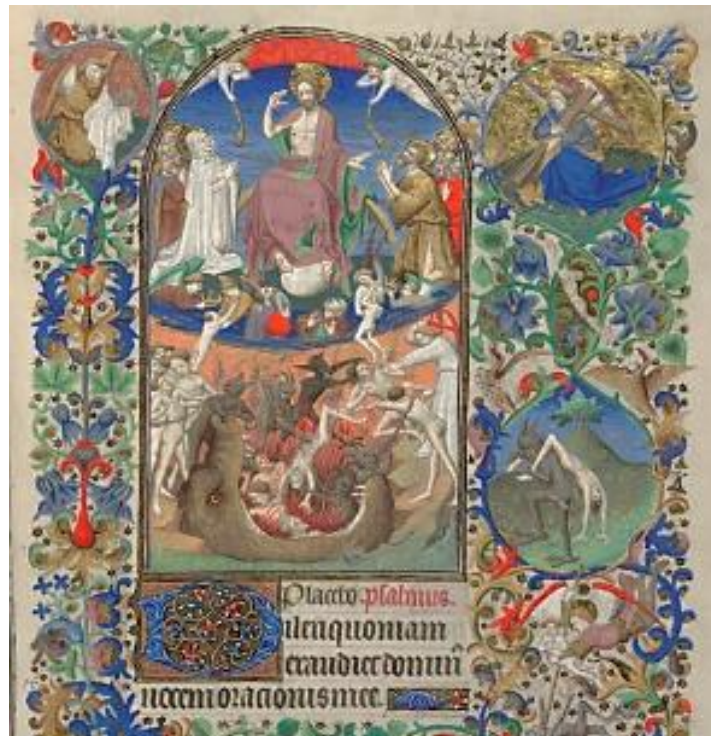 Placebo psalmus.
Dilexi quoniam
exaudiet domin̄
vocem oracionis mee.